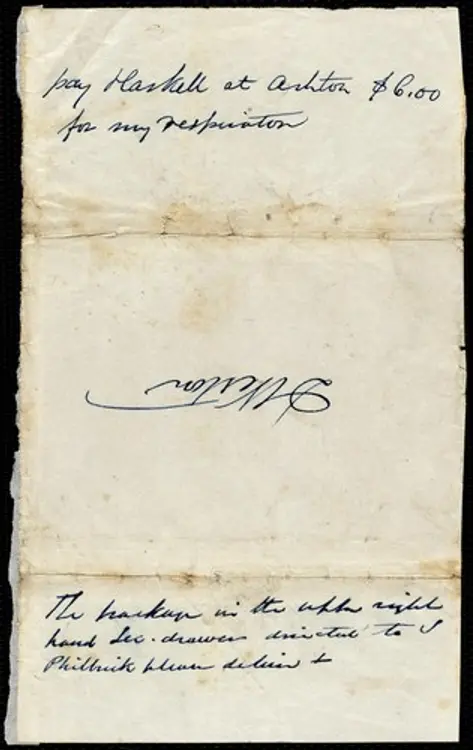 pay Haskell at Ashton $6.00
for my respirator
D Weston
The package in the upper right
hand Sec. drawer directed to S
Philbrick please deliver +